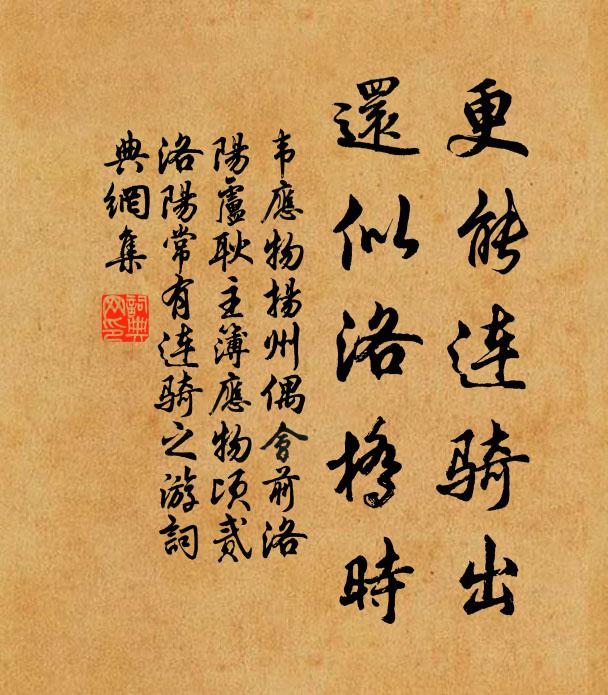 更能連騎出
還似洛橋時
韋應物揚州偶會前洛
陽盧耿主簿應物頃貳
洛陽常有連騎之游詞
典網集
詞典網印